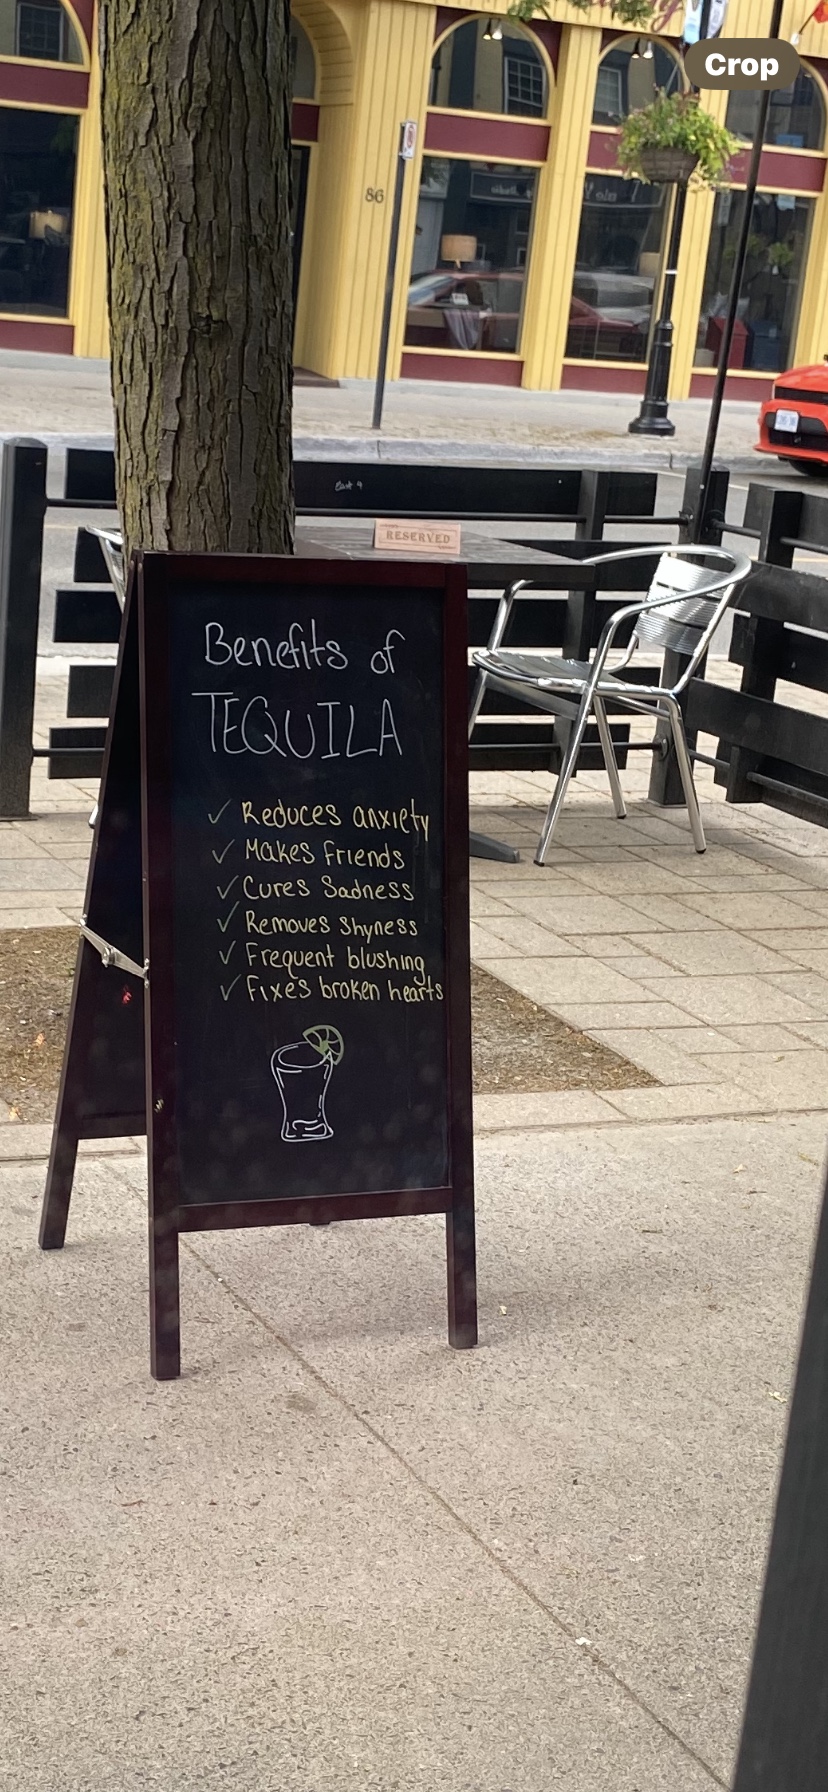 Crop
86
East 9
RESERVED
Benefits of
TEQUILA
✓ Reduces anxiety
✓ Makes Friends
✓ Cures Sadness
✓ Removes Shyness
✓ Frequent blushing
✓ Fixes broken hearts